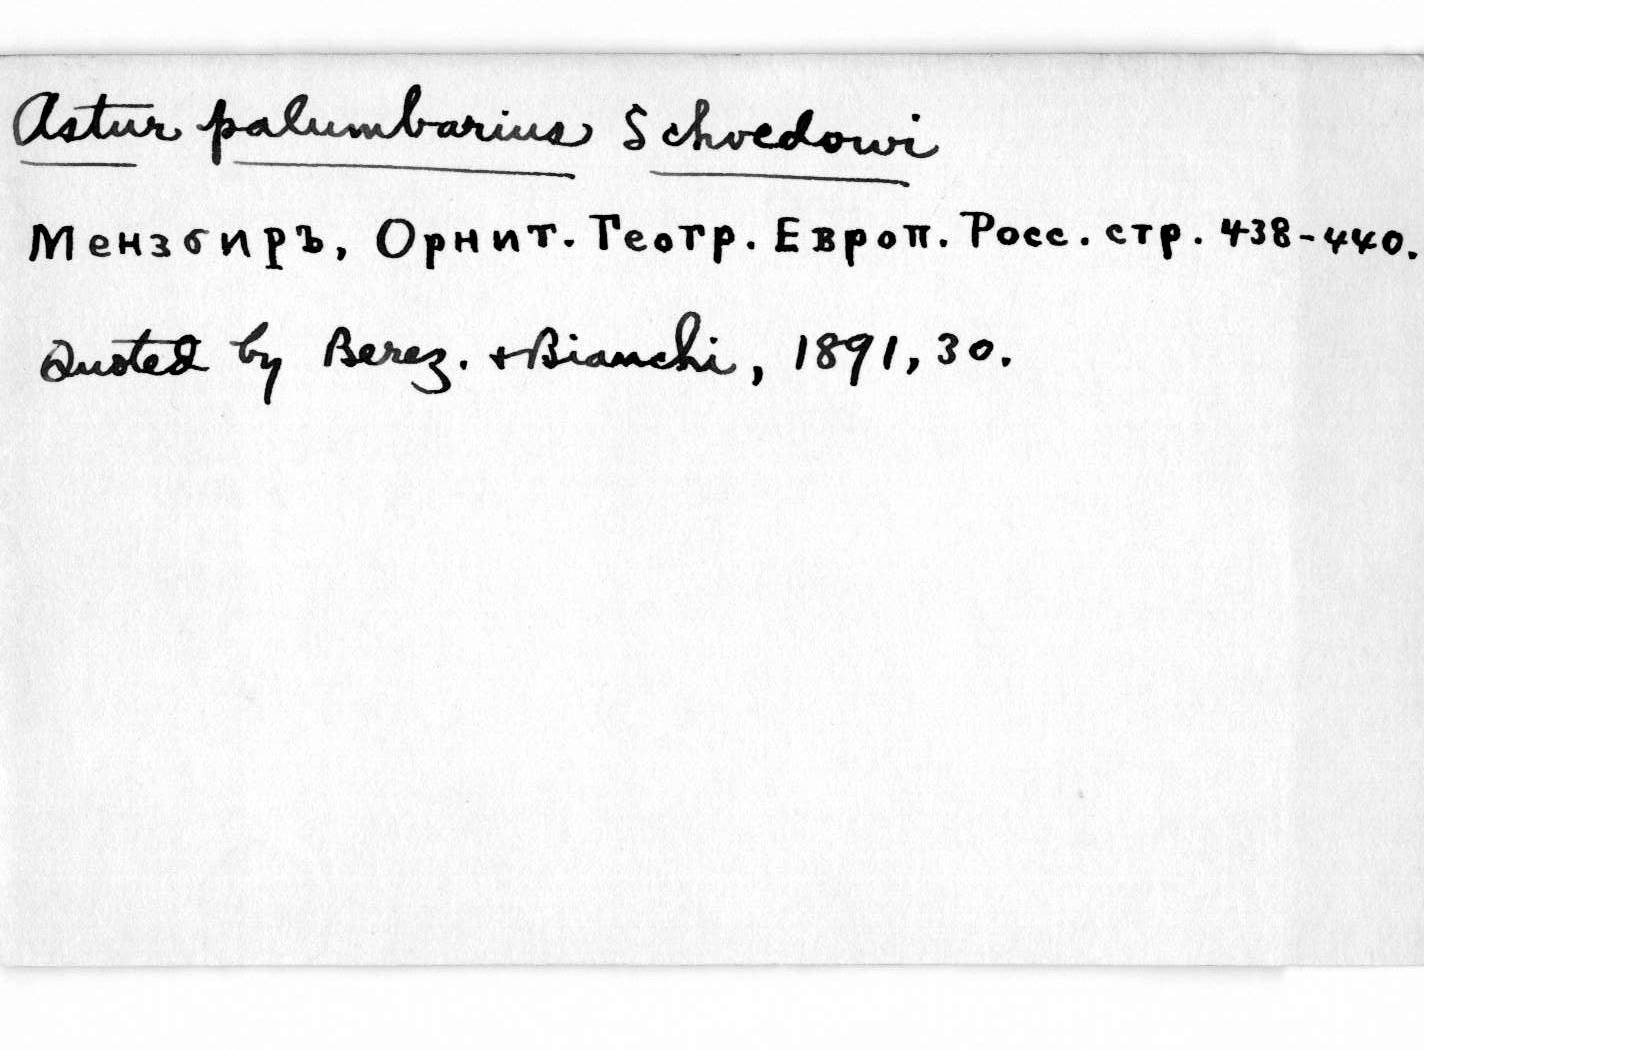 Astur palumbarius Schvedowi
Мензбиръ, Орнит. Геогр. Европ. Росс. стр. 438-440.
Quoted by Berez. + Bianchi, 1891, 30.